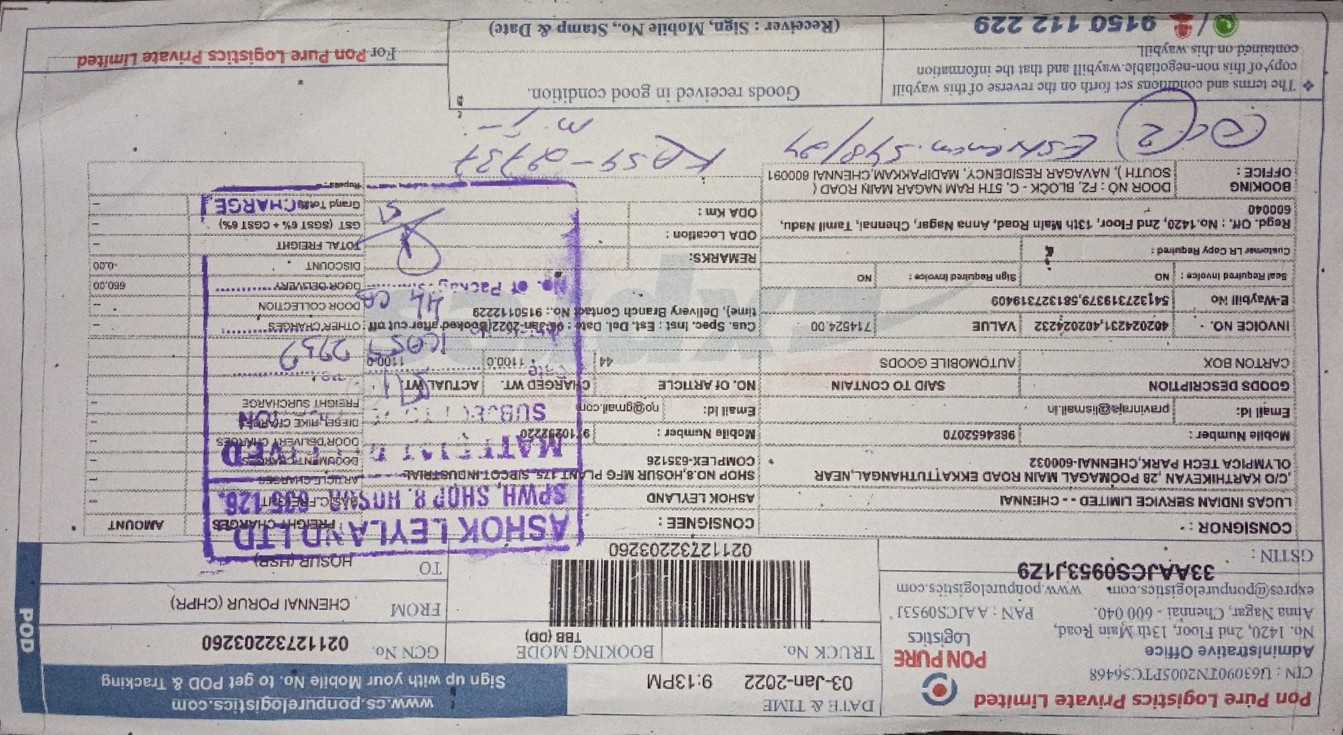 Pon Pure Logistics Private Limited
CIN : U63090TN2005PTC56468
Administrative Office
No. 1420, 2nd Floor, 13th Main Road,
Anna Nagar, Chennai - 600 040.
PAN : AAJCS0953J
expres@ponpurelogistics.com
www.ponpurelogistics.com
GSTIN :
33AAJCS0953J1Z9
PON PURE
Logistics
DATE & TIME
03-Jan-2022 9:13PM
TRUCK No.
BOOKING MODE
TBB (DD)
02112732203260
www.cs.ponpurelogistics.com
Sign up with your Mobile No. to get POD & Tracking
GCN No. 02112732203260
FROM CHENNAI PORUR (CHPR)
TO HOSUR (HSR)
POD
CONSIGNOR :
LUCAS INDIAN SERVICE LIMITED - - CHENNAI
,C/O KARTHIKEYAN ,28 POOMAGAL MAIN ROAD EKKATTUTHANGAL,NEAR
OLYMPICA TECH PARK,CHENNAI-600032
Mobile Number : 9884652070
Email Id: pravinraja@lismail.in
CONSIGNEE :
ASHOK LEYLAND
SHOP NO.8,HOSUR MFG PLANT 175, SIPCOT INDUSTRIAL
COMPLEX-635126
Mobile Number :
Email Id: no@gmail.com
FREIGHT CHARGES AMOUNT
ARTICLE CHARGES -
DOCUMENT CHARGES -
DOOR DELIVERY CHARGES -
DIESEL HIKE CHARGES -
FREIGHT SURCHARGE -
OTHER CHARGES -
DOOR COLLECTION -
DOOR DELIVERY 660.00
DISCOUNT -0.00
TOTAL FREIGHT -
GST (SGST 6% + CGST 6%) -
Grand Total -
Rupees :
GOODS DESCRIPTION SAID TO CONTAIN NO. OF ARTICLE CHARGED WT. ACTUAL WT.
CARTON BOX AUTOMOBILE GOODS 44 1100.0 1100.0
INVOICE NO. - 402024231,402024232 VALUE 714524.00
E-Waybill No 541323731937
Cus. Spec. Inst : Est. Del. Date : 06-Jan-2022(Booked after cut off
time), Delivery Branch Contact No.: 9150112229
Seal Required Invoice : NO Sign Required Invoice : NO
Customer LR Copy Required :
REMARKS:
ODA Location :
ODA Km :
Regd. Off. : No.1420, 2nd Floor, 13th Main Road, Anna Nagar, Chennai, Tamil Nadu,
600040
BOOKING OFFICE : DOOR NO : F2, BLOCK - C, 5TH RAM NAGAR MAIN ROAD (
SOUTH ), NAVAGAR RESIDENCY, MADIPAKKAM,CHENNAI 600091
ASHOK LEYLAND LTD.
SPWH, SHOP 8, HOSUR 635 126.
MATERIAL RECEIVED
SUBJECT TO
No. of Packages
44 CB
2737
KA59-2737
❖ The terms and conditions set forth on the reverse of this waybill
copy of this non-negotiable waybill and that the information
contained on this waybill.
9150 112 229
Goods received in good condition.
(Receiver : Sign, Mobile No., Stamp & Date)
For Pon Pure Logistics Private Limited